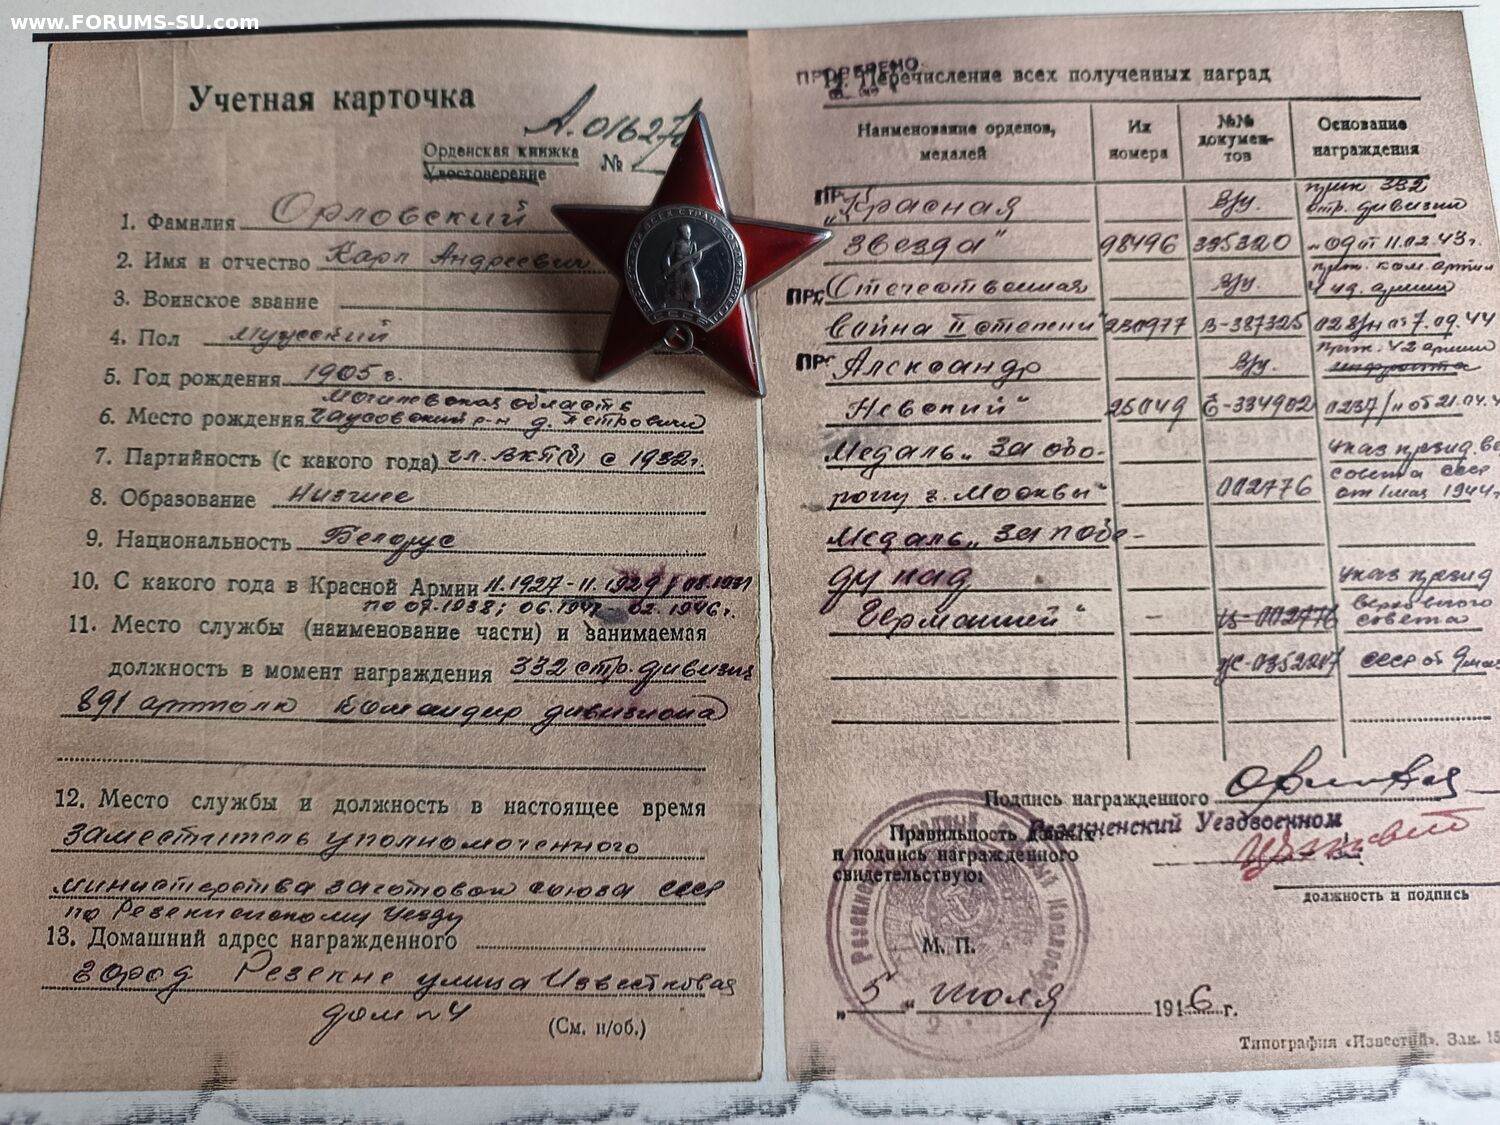 www.FORUMS-SU.com
Учетная карточка
А.01627
Орденская книжка №
Удостоверение
1. Фамилия Орловский
2. Имя и отчество Карл Андреевич
3. Воинское звание
4. Пол мужской
5. Год рождения 1905 г.
Могилевская область
6. Место рождения Чаусовский р-н д. Петровичи
7. Партийность (с какого года) чл. ВКП(б) с 1932 г.
8. Образование Низшее
9. Национальность Белорус
10. С какого года в Красной Армии 11.1927 - 11.1929; 08.1931
по 07.1938; 06.1941 - 02.1946г.
11. Место службы (наименование части) и занимаемая
должность в момент награждения 332 стр. дивизия
891 артполк Командир дивизиона
12. Место службы и должность в настоящее время
Заместитель уполномоченного
министерства заготовок союза ССР
по Резекненскому уезду
13. Домашний адрес награжденного
город Резекне улица Известковая
дом № 4
(См. н/об.)
ПРОВЕРЕНО
14. Перечисление всех полученных наград
Наименование орденов, медалей
Их номера
№№ документов
Основание награждения
„Красная В/у. прик 332 стр. дивизии
Звезда" 98496 335320 „09 от 11.02.43г.
Отечественная В/у. прик. ком. артил 4 уд. армии
война II степени" 230977 В-387325 028/н от 7.09.44
Александр В/у. прик. 42 армии
Невский" 25049 Б-334902 0237/н от 21.04.4
Медаль „За обо- указ презид. Ве
рону г. Москвы" 002776 совета СССР от 1 мая 1944г
Медаль „За побе-
ду над указ презид
Германией" - 002776 верховного совета
0352217 СССР от 9 мая
Подпись награжденного
Правильность
Резекненский Уездвоенком
и подпись награжденного
свидетельствую:
должность и подпись
М. П.
„5" июля 1946 г.
Типография «Известий». Зак. 15
ПРОЛЕТАРИИ ВСЕХ СТРАН, СОЕДИНЯЙТЕСЬ!
СССР